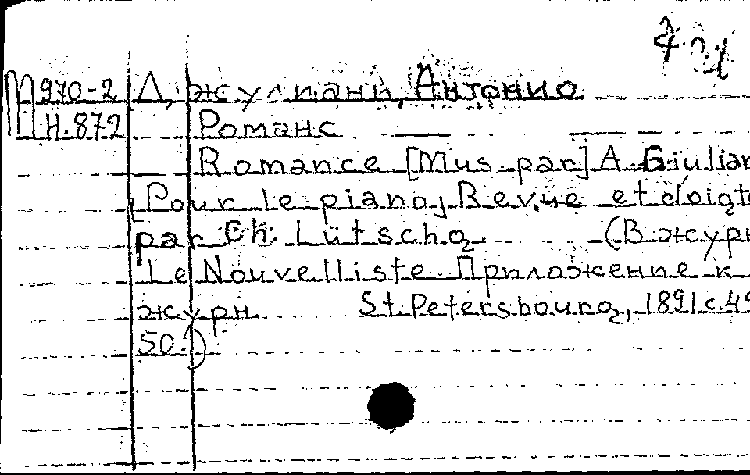 М970-2 Джулиани, Антонио
Н.872 Романс
Romance [Mus. par] A. Giulian
[Pour le piano] Revue et doigté
par Ch. Lütschg (В журн
Le Nouvelliste Приложение к
журн. St. Petersbourg, 1891 с 49
50.)